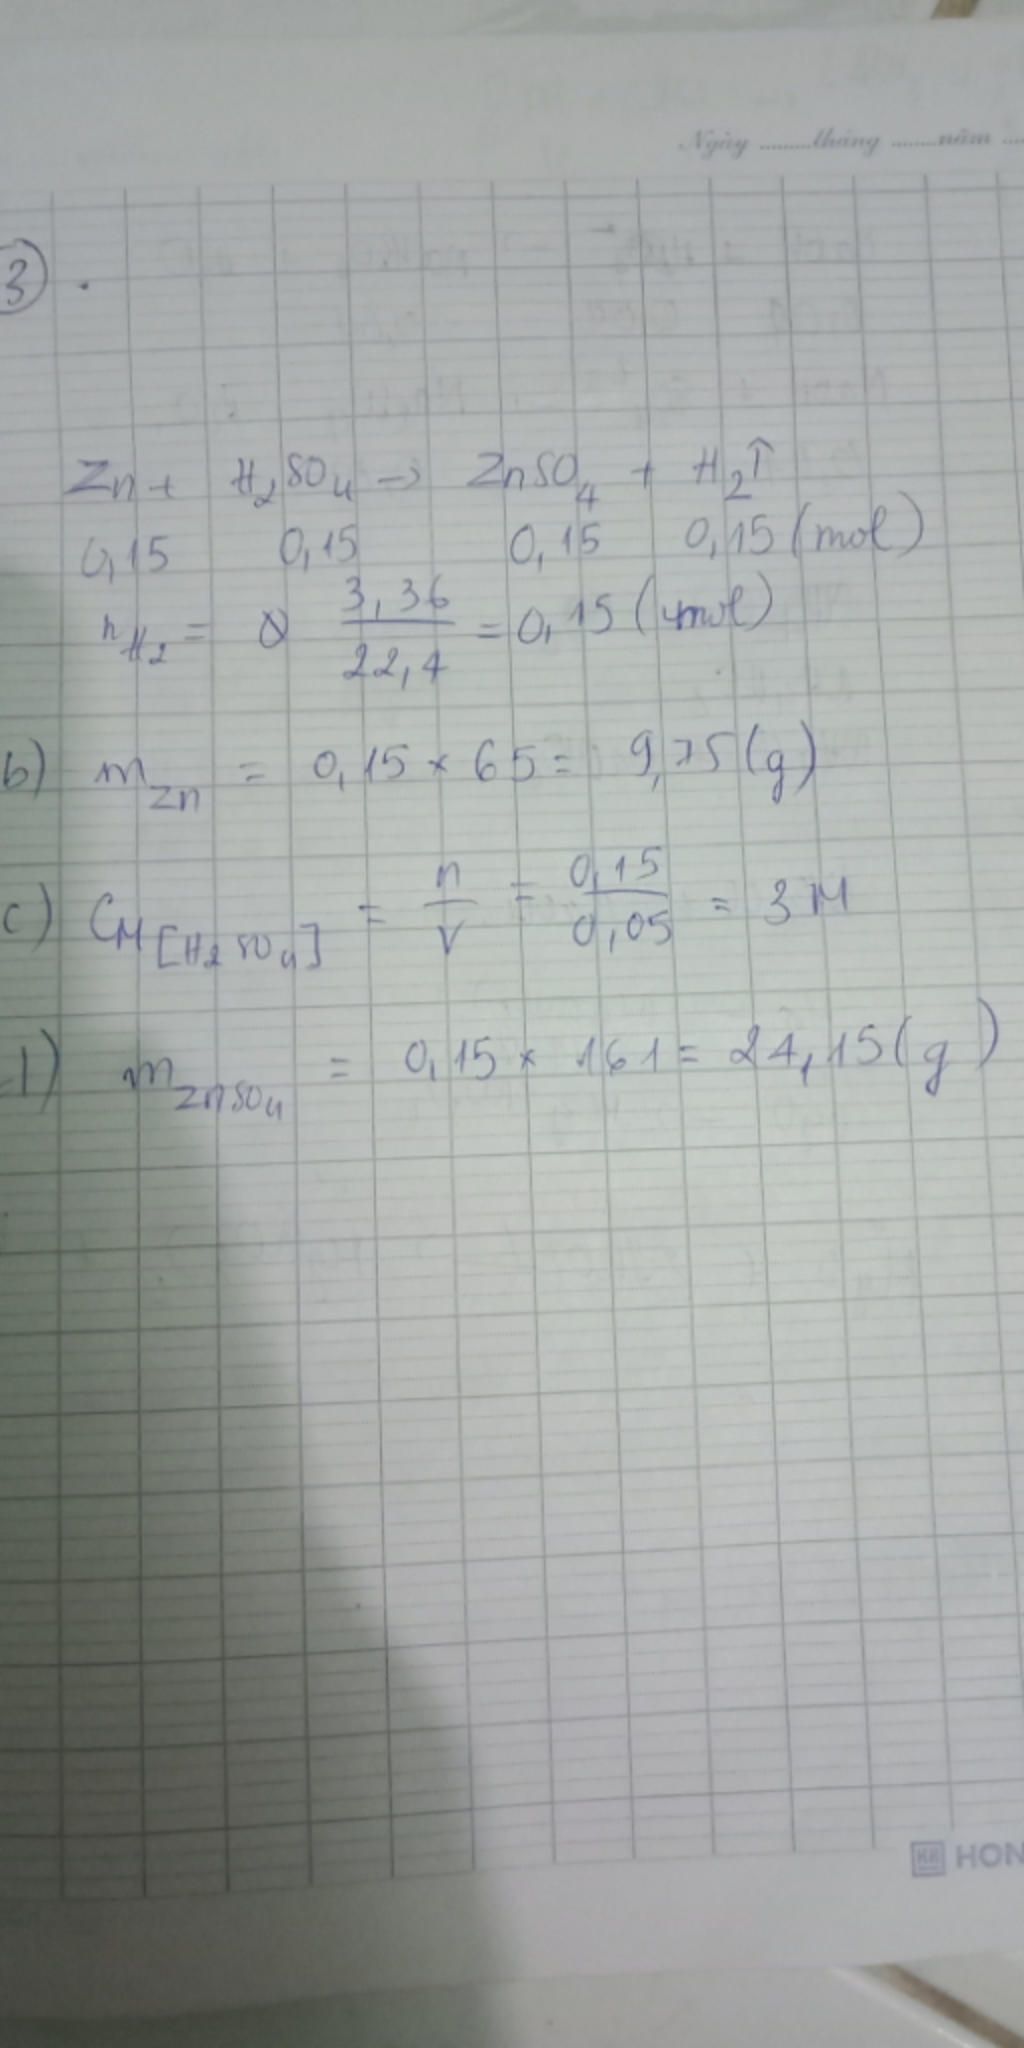 Ngày ........tháng .......năm ....
3 .
Zn + H₂SO₄ → ZnSO₄ + H₂↑
0,15 0,15 0,15 0,15 (mol)
nH₂ = 3,36/22,4 = 0,15 (mol)
b) mZn = 0,15 × 65 = 9,75 (g)
c) CM[H₂SO₄] = n/V = 0,15/0,05 = 3 M
d) mZnSO₄ = 0,15 × 161 = 24,15 (g)
HON